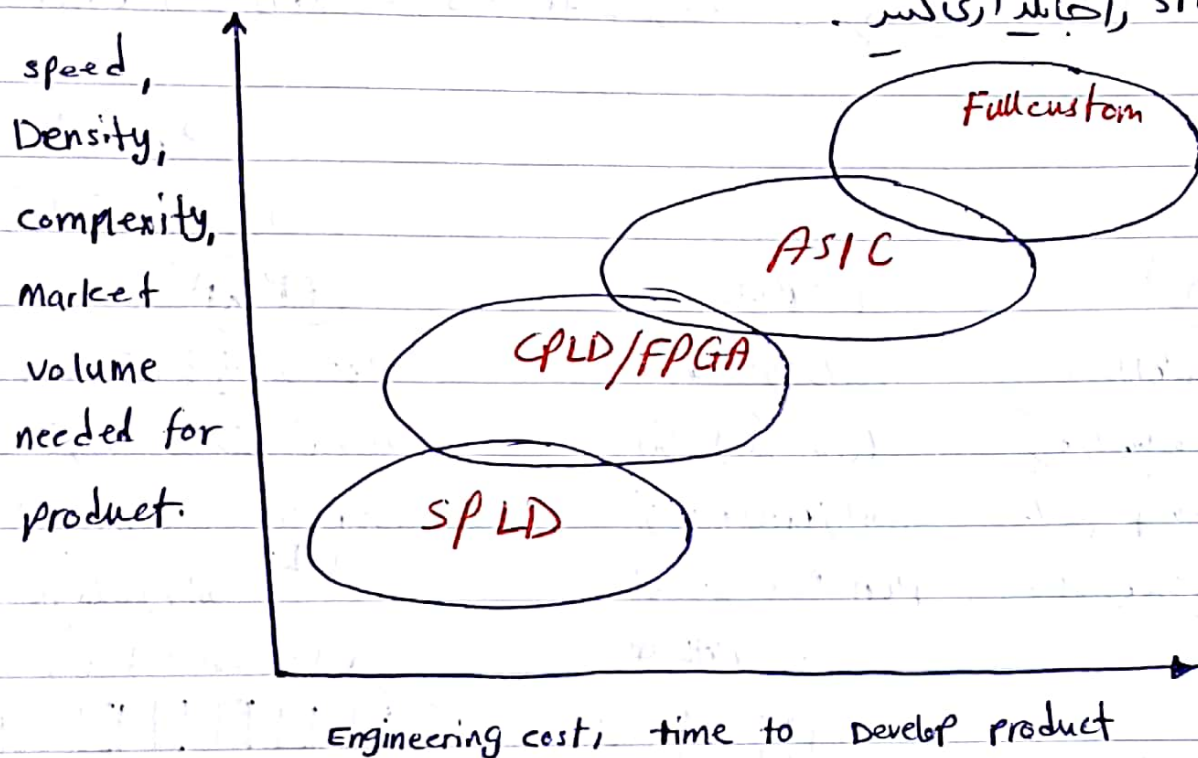 را جایگذاری کنید .
speed,
Density,
complexity,
Market
volume
needed for
product.
Fullcustom
ASIC
CPLD/FPGA
SPLD
Engineering cost, time to Develop product